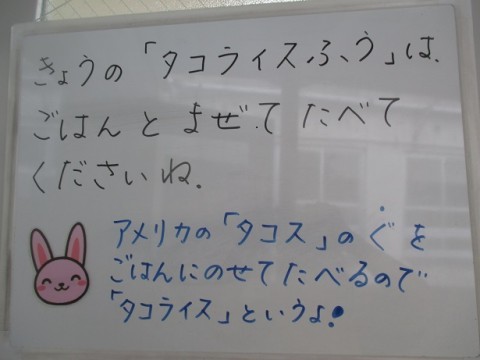 きょうの「タコライスふう」は、
ごはんと まぜて たべて
くださいね。
アメリカの「タコス」のぐを
ごはんにのせてたべるので
「タコライス」というよ!